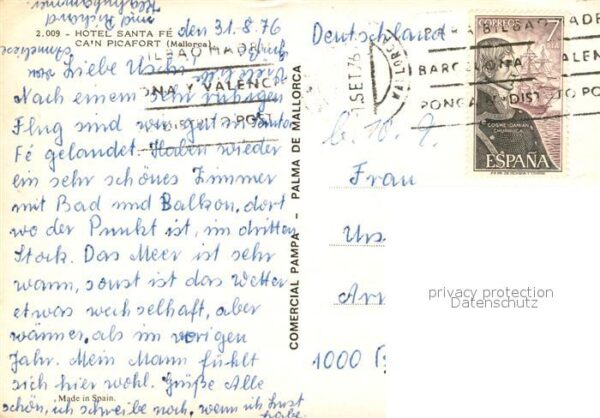 2.009 - HOTEL SANTA FÉ
CA'N PICAFORT (Mallorca)
den 31.8.76
Liebe Uschi,
Nach einem sehr ruhigen
Flug sind wir gut in Santa
Fé gelandet. Haben wieder
ein sehr schönes Zimmer
mit Bad und Balkon, dort
wo der Punkt ist, im dritten
Stock. Das Meer ist sehr
warm, sonst ist das Wetter
etwas wechselhaft, aber
wärmer, als im vorigen
Jahr. Mein Mann fühlt
sich hier wohl. Grüße Alle
schön, ich schreibe noch, wenn ich Lust
habe
Viele
von
und Richard
Made in Spain.
COMERCIAL PAMPA - PALMA DE MALLORCA
Deutschland
SET 76
MALLORCA
BARCELONA
PONGA DISTRITO POSTAL
CORREOS
7
PTA
COSME DAMIAN
CHURRUCA
ESPAÑA
Frau
Urs
1000
privacy protection
Datenschutz